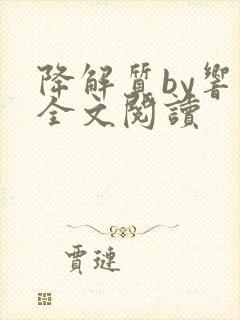 降解質by響
全文閱讀
賈璉